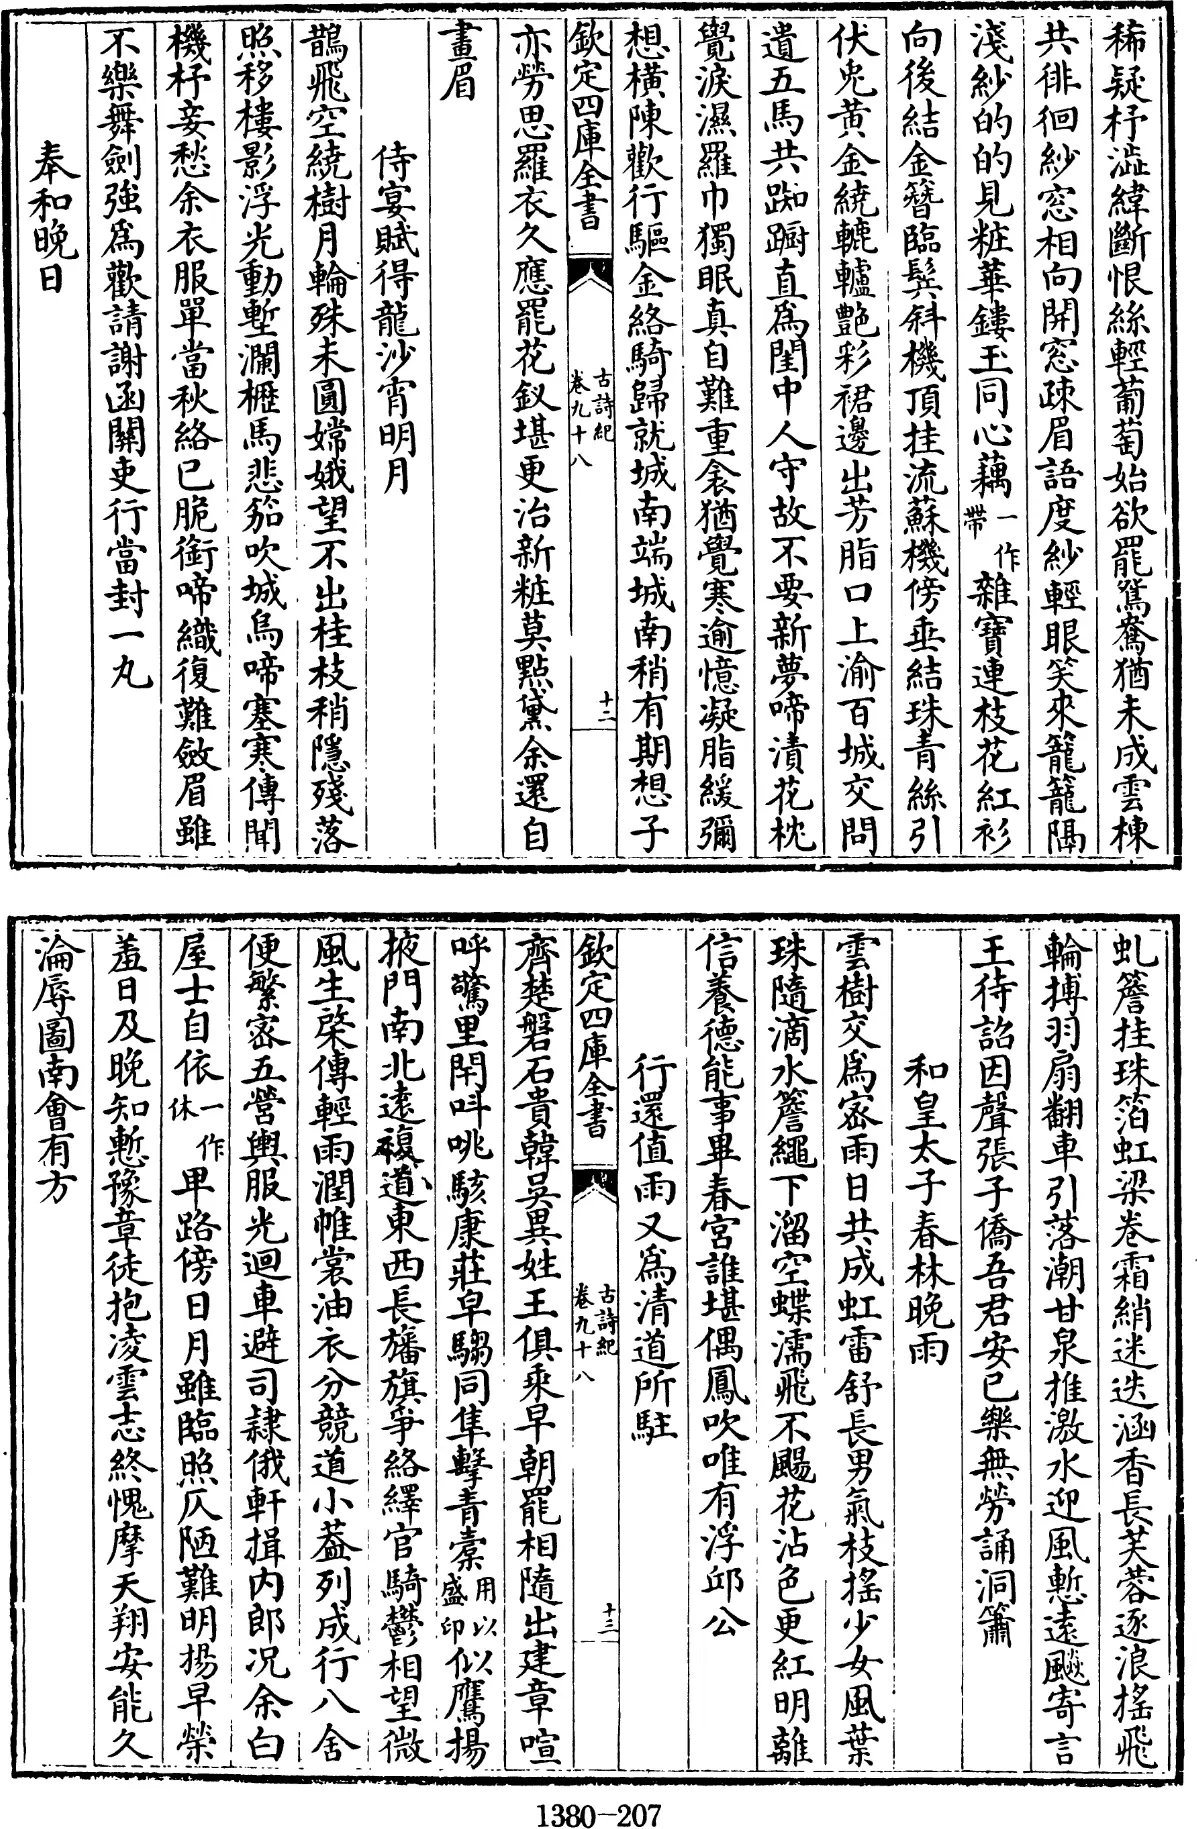 稀疑杼澁緯斷恨絲輕葡萄始欲罷鴛鴦猶未成雲棟
共徘徊紗窓相向開窓疎眉語度紗輕眼笑來籠籠隔
淺紗的的見粧華鏤玉同心藕一作帶雜寶連枝花紅衫
向後結金簪臨鬂斜機頂挂流蘇機傍垂結珠青絲引
伏兎黄金繞轆轤艶彩裙邊出芳脂口上渝百城交問
遺五馬共踟蹰直爲閨中人守故不要新夢啼漬花枕
覺淚濕羅巾獨眠真自難重衾猶覺寒逾憶凝脂緩彌
想橫陳歡行驅金絡騎歸就城南端城南稍有期想子
欽定四庫全書
古詩紀
卷九十八
十二
亦勞思羅衣久應罷花釵堪更治新粧莫點黛余還自
畫眉
侍宴賦得龍沙宵明月
鵲飛空繞樹月輪殊未圓嫦娥望不出桂枝稍隱殘落
照移樓影浮光動塹瀾櫪馬悲笳吹城烏啼塞寒傳聞
機杼妾愁余衣服單當秋絡已脆銜啼織復難斂眉雖
不樂舞劍強爲歡請謝函關吏行當封一丸
奉和晚日
虬簷挂珠箔虹梁卷霜綃迷迭涵香長芙蓉逐浪搖飛
輪摶羽扇翻車引落潮甘泉推激水迎風慙遠飈寄言
王待詔因聲張子僑吾君安已樂無勞誦洞簫
和皇太子春林晚雨
雲樹交爲密雨日共成虹雷舒長男氣枝搖少女風葉
珠隨滴水簷繩下溜空蝶濡飛不颺花沾色更紅明離
信養德能事畢春宮誰堪偶鳳吹唯有浮邱公
行還值雨又爲清道所駐
欽定四庫全書
古詩紀
卷九十八
十三
齊楚磐石貴韓吳異姓王俱乘早朝罷相隨出建章喧
呼驚里閈呌咷駭康莊皁騶同隼擊青橐用以盛印似鷹揚
掖門南北遠複道東西長旛旗爭絡繹官騎鬱相望微
風生棨傳輕雨潤帷裳油衣分競道小葢列成行八舍
便繁密五營輿服光迴車避司隷俄軒揖内郎况余白
屋士自依一作休卑路傍日月雖臨照仄陋難明揚早榮
羞日及晚知慙豫章徒抱凌雲志終愧摩天翔安能久
淪辱圖南會有方
1380-207